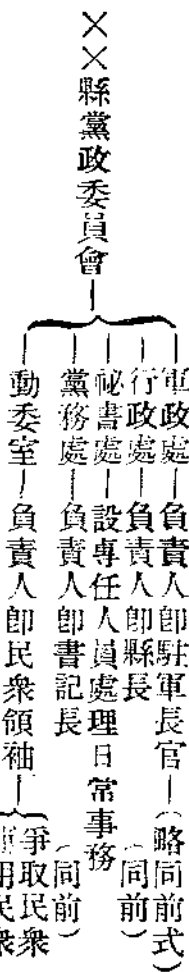 ××縣黨政委員會
軍政處—負責人卽駐軍長官—(略同前式)
行政處—負責人卽縣長(同前)
祕書處—設專任人員處理日常事務
黨務處—負責人卽書記長(同前)
動委室—負責人卽民衆領袖
爭取民衆
用民衆